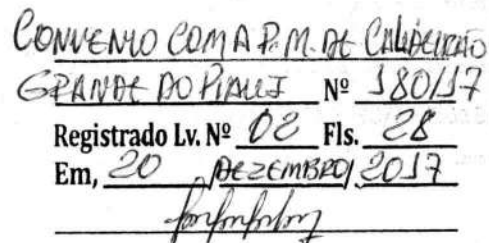 CONVENIO COM A P.M. DE CALDEIRÃO
GRANDE DO PIAUI Nº 180/17
Registrado Lv. Nº 02 Fls. 28
Em, 20 / DEZEMBRO / 2017